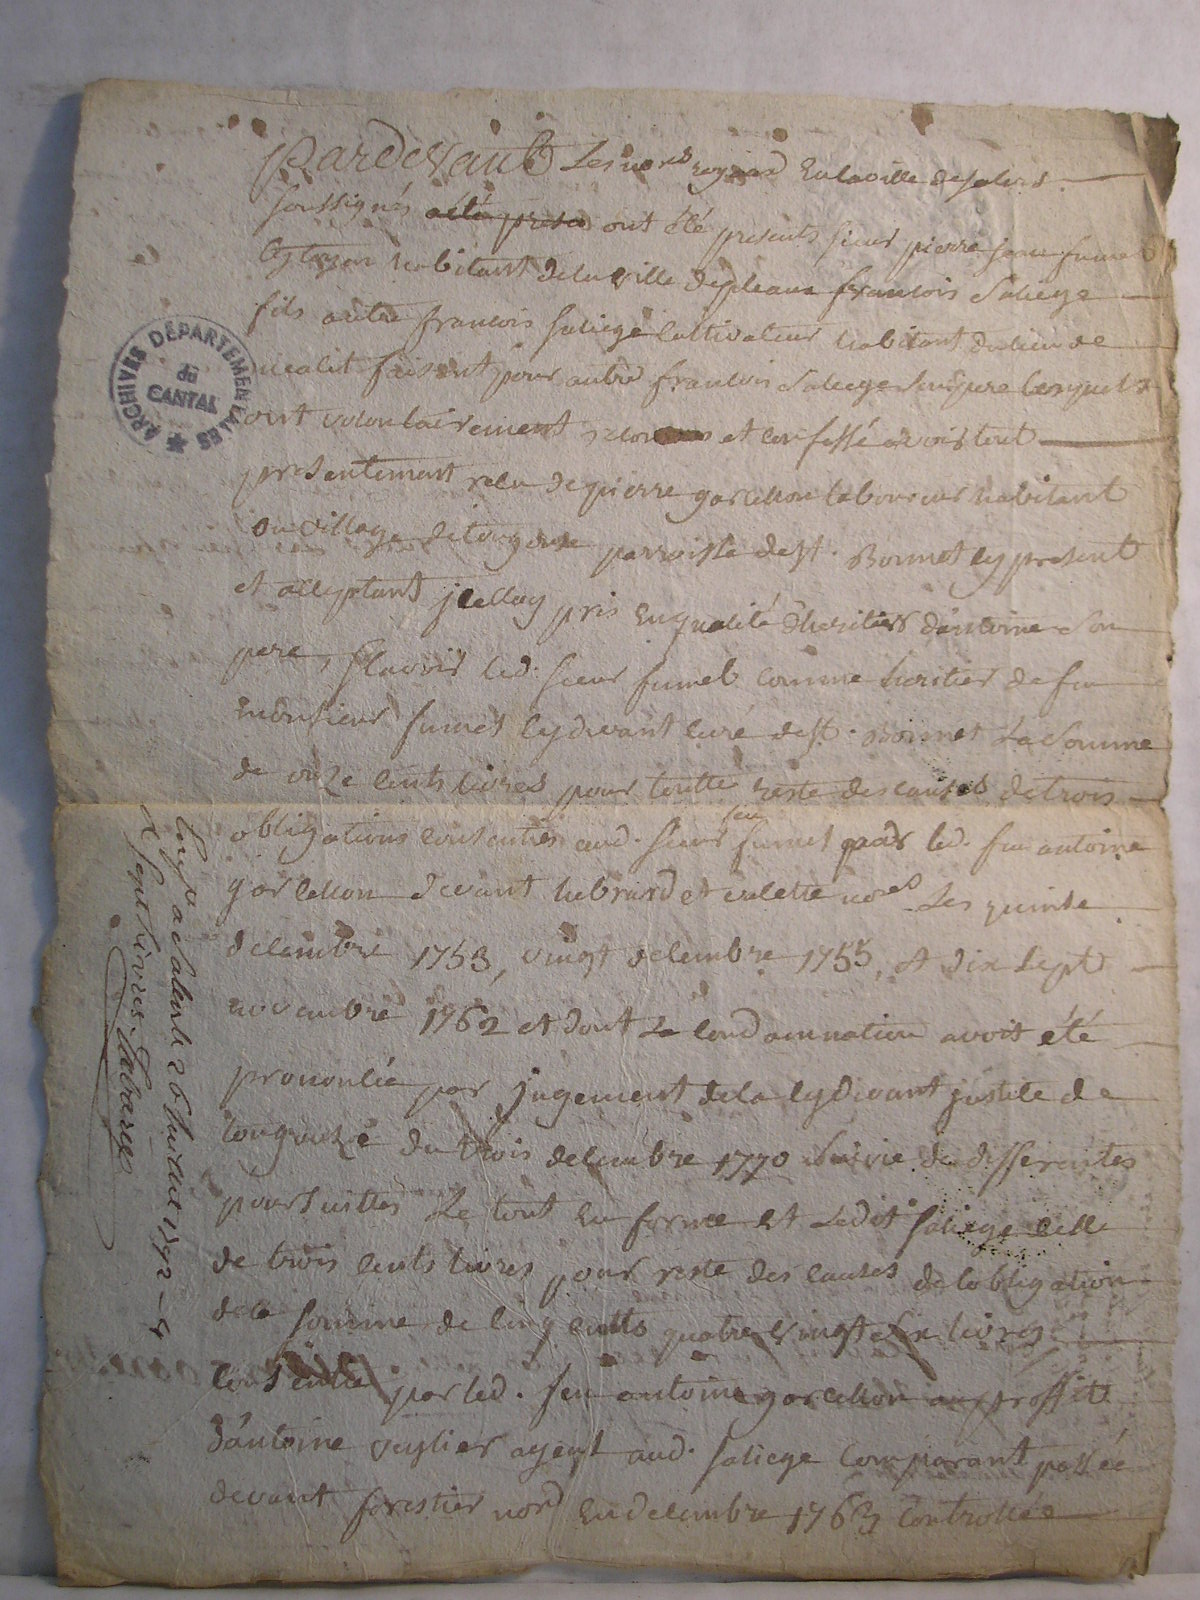 Pardevant Les no.res royaux En la ville de salers
soussignés a été presen ont été presents sieur pierre jean fumel
Citoyen habitant de la ville de pleaux francois Saliege
fils autre francois saliege Cultivateur habitant du lieu de
faisant pour autre francois Saliege Son pere Lesquels
ont volontairement et confessé avoir tout
présentement recu de pierre garcelon laboureur habitant
du village de tougouse parroisse de st. Bonnet Cy present
et acceptant icelluy pris En qualité d'heritier d'antoine Son
pere, scavoir led. sieur fumel comme heritier de feu
monsieur fumel Cy devant curé de st. Bonnet La Somme
de onze cents livres pour toutte reste des causes de trois
obligations consenties aud. sieur feu fumel par led. feu antoine
garcelon devant hebrard et valette no.res Les quinze
decembre 1753, vingt decembre 1755, et dix Sept
novembre 1762 et dont La condamnation avoit été
prononcée par jugement de la Cy devant justice de
tougouze du trois decembre 1770 Suivie de differentes
poursuittes Le tout En forme Et Ledit saliege celle
de trois cents livres pour reste des causes de lobligation
de la somme de cinq cents quatre vingt Six livres
consentie par led. feu antoine garcelon au proffit
d'antoine ayent aud. saliege Comparant passée
devant forestier no.re En decembre 1763 Controllée
ARCHIVES DÉPARTEMENTALES
du
CANTAL
a Salers le 26 juillet 1792
Sept livres